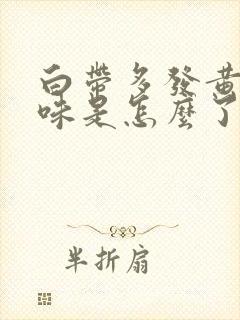 白帶多發黃
味是怎麼了
半折扇